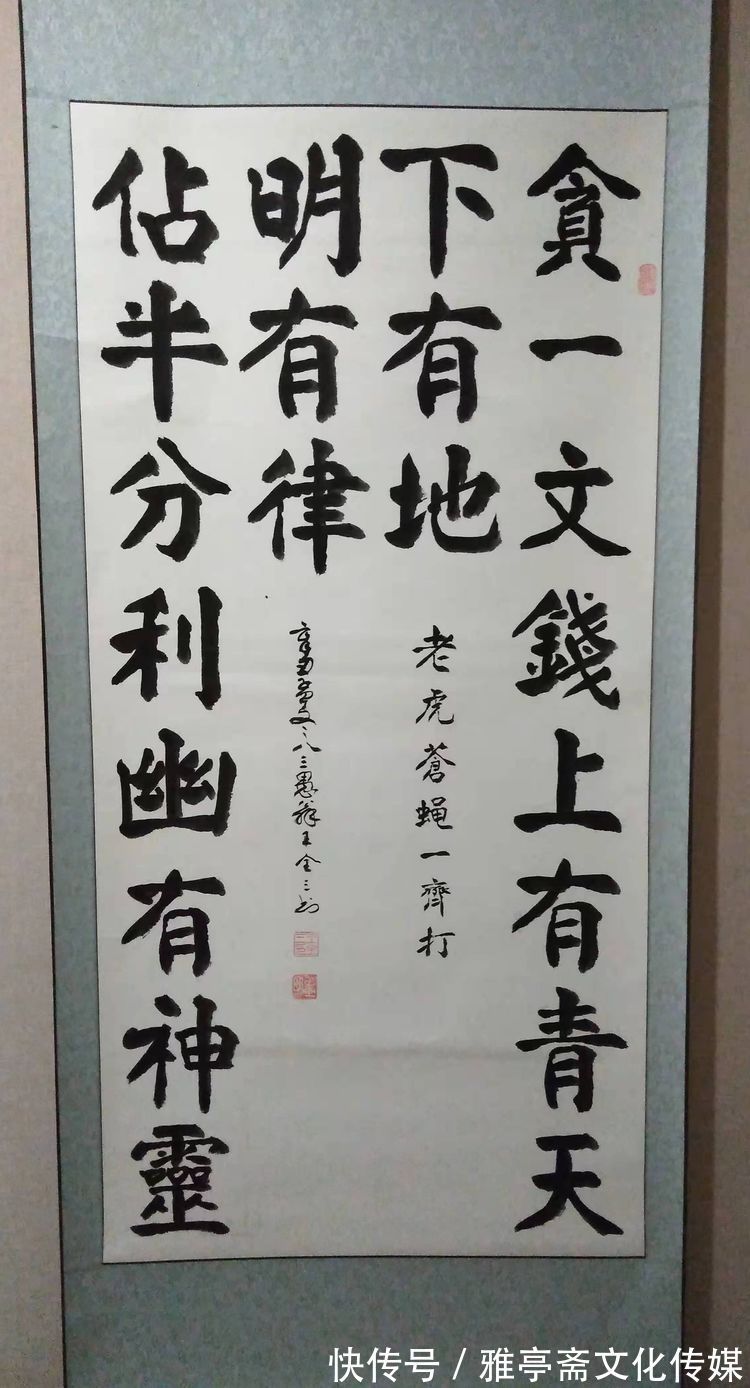 貪一文錢上有青天
下有地
老虎蒼蝇一齊打
佔半分利幽有神靈
明有律
孟夏八三愚翁王全三书
快传号 / 雅亭斋文化传媒